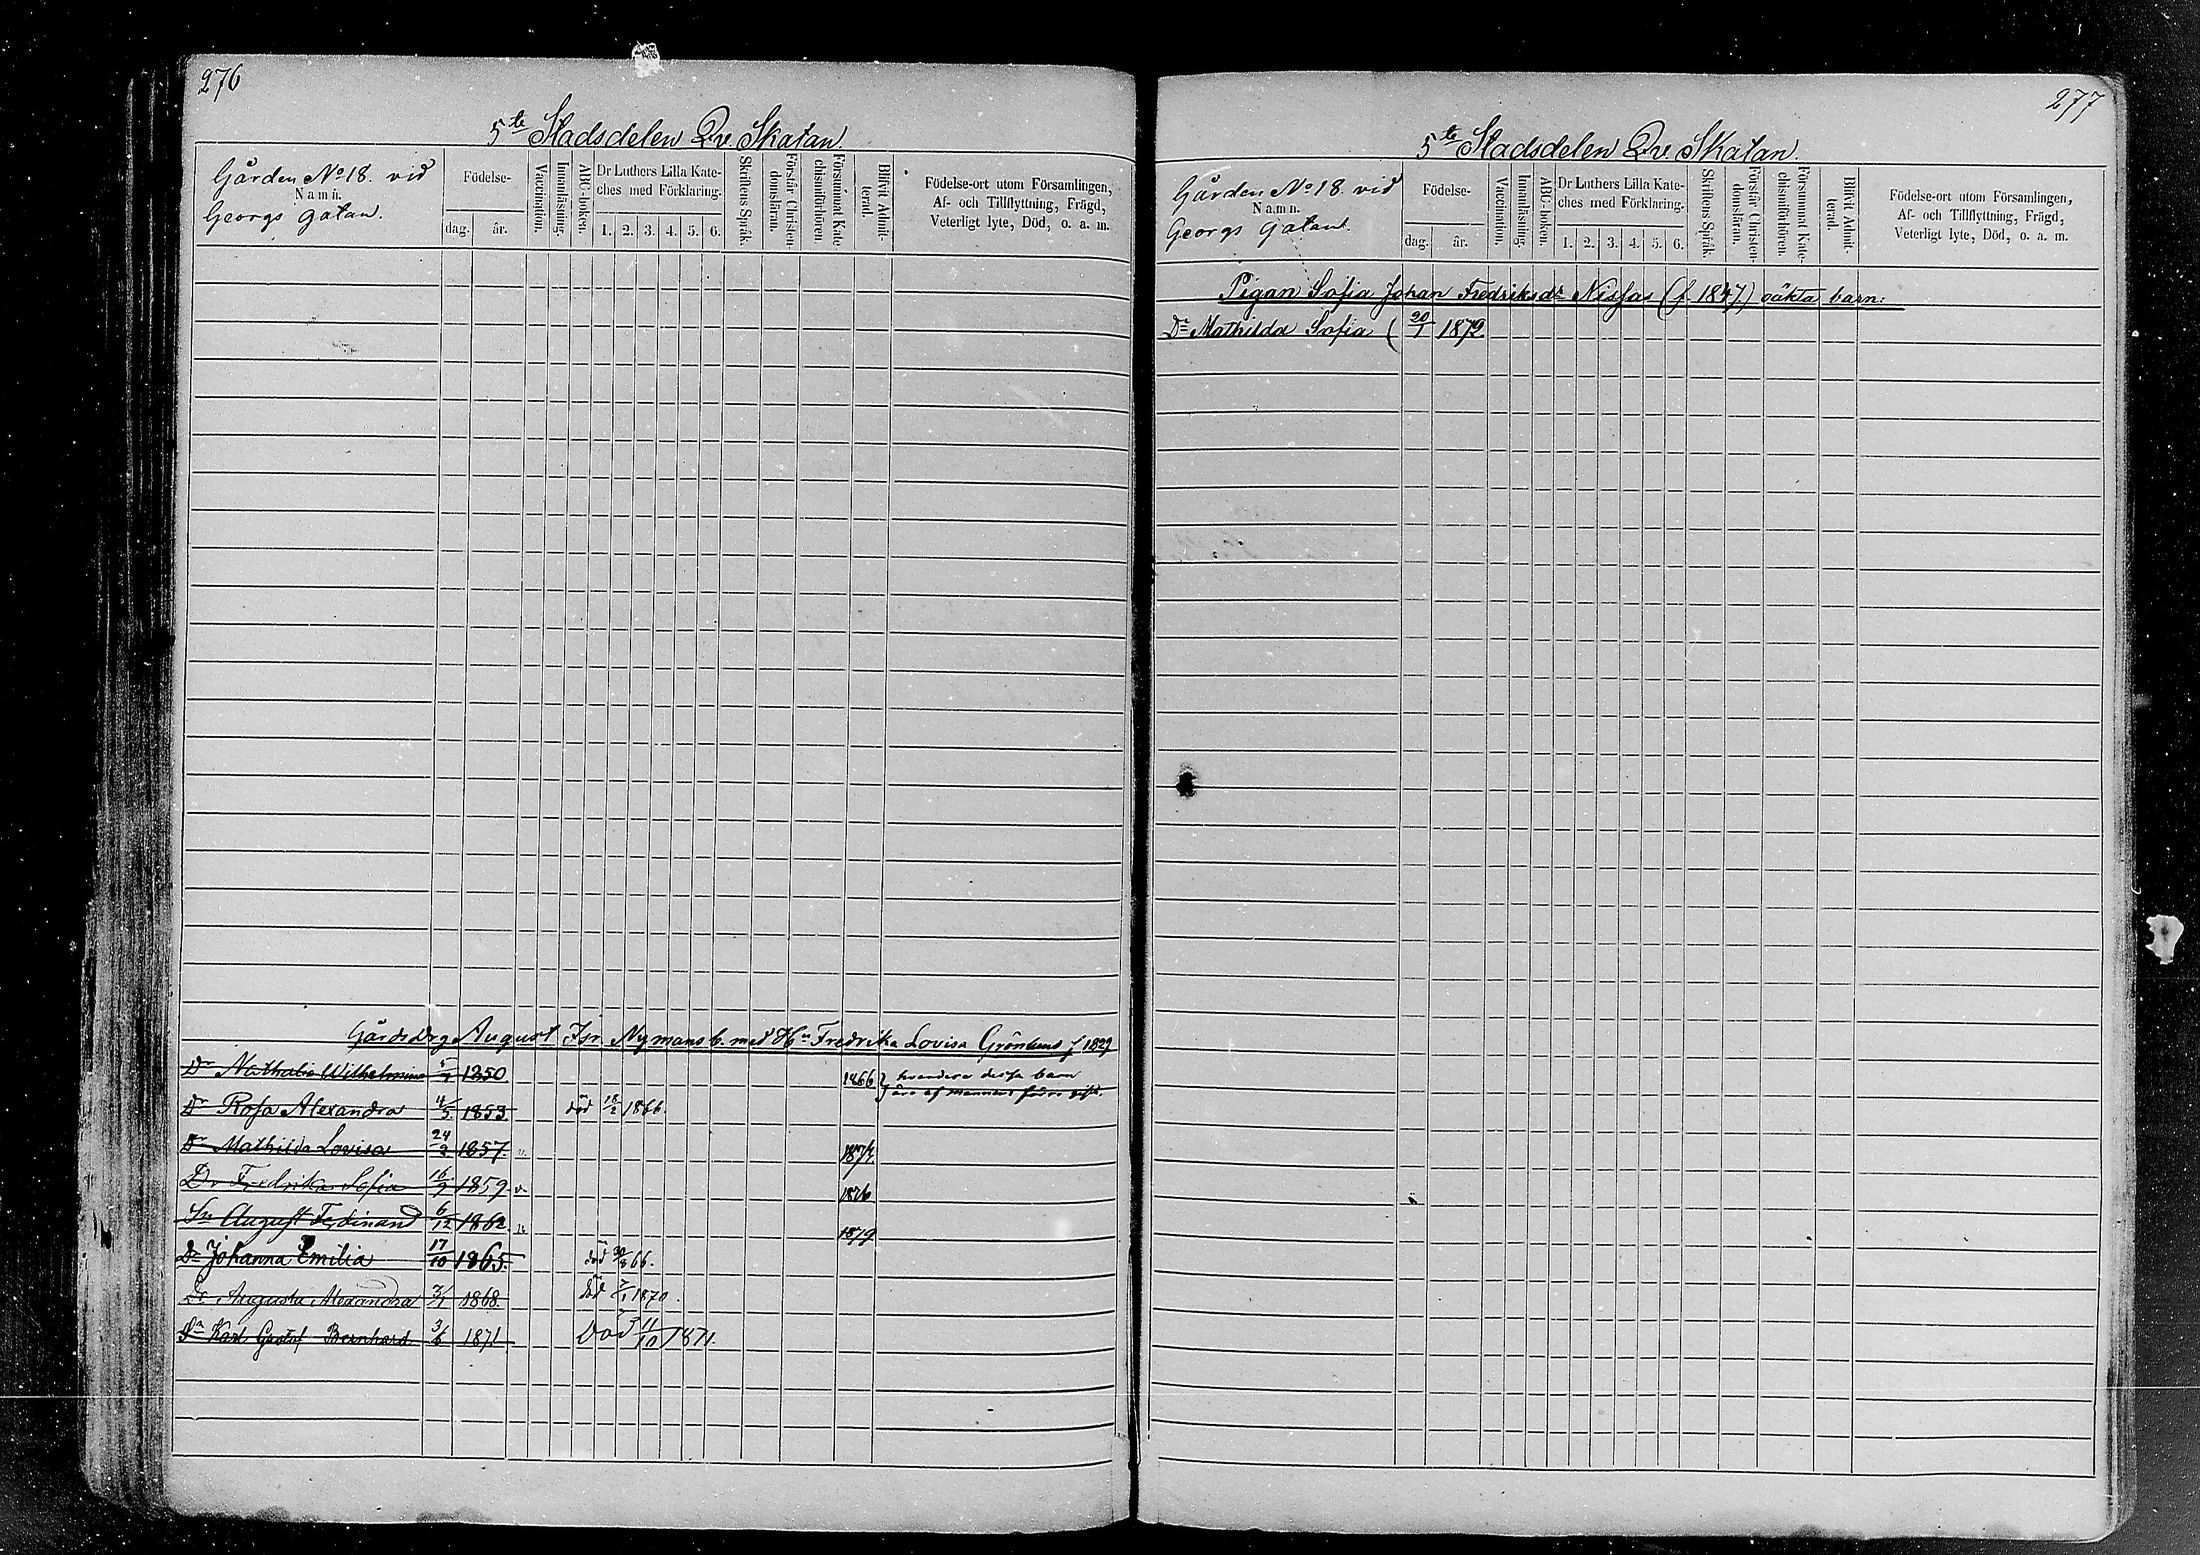 276
5te Stadsdelen Qv. Skatan.
Gården No 18. vid
Namn.
Georgs gatan.
Födelse-
dag. år.
Vaccination.
Innanläsning.
ABC-boken.
Dr Luthers Lilla Kate-
ches med Förklaring.
1. 2. 3. 4. 5. 6.
Skriftens Språk.
Förstår Christen-
domsläran.
Försummat Kate-
chismiförhören
Blifvit Admit-
terad.
Födelse-ort utom Församlingen,
Af- och Tillflyttning, Frägd,
Veterligt lyte, Död, o. a. m.
Gårds Drg August Nymans b. med Fredrika Lovisa Grönlund f 1829
Dr Nathalia Wilhelmina 1850. 1866 dessa barn
äro af mannens förra gifte.
Dr Rosa Alexandra 4/5 1853. död 18/2 1866.
Dr Mathilda Lovisa 24/2 1857. v. 1874.
Dr Fredrika Sofia 16/9 1859. v. 1876
Sn August Ferdinand 6/12 1862. 1879
Dr Johanna Emilia 17/10 1865. död 66.
Dr Augusta Alexandra 3/1 1868. död 1870.
Sn Karl Gustaf Bernhard 3/6 1871. Död 11/10 1871.
277
5te Stadsdelen Qv. Skatan.
Gården No 18 vid
Namn.
Georgs gatan.
Födelse-
dag. år.
Vaccination.
Innanläsning.
ABC-boken.
Dr Luthers Lilla Kate-
ches med Förklaring.
1. 2. 3. 4. 5. 6.
Skriftens Språk.
Förstår Christen-
domsläran.
Försummat Kate-
chismiförhören.
Blifvit Admit-
terad.
Födelse-ort utom Församlingen,
Af- och Tillflyttning, Frägd,
Veterligt lyte, Död, o. a. m.
Pigan Sofia Johan Fredriksdr Nissas (f. 1847) oäkta barn:
Dr Mathilda Sofia ( 20/1 1872